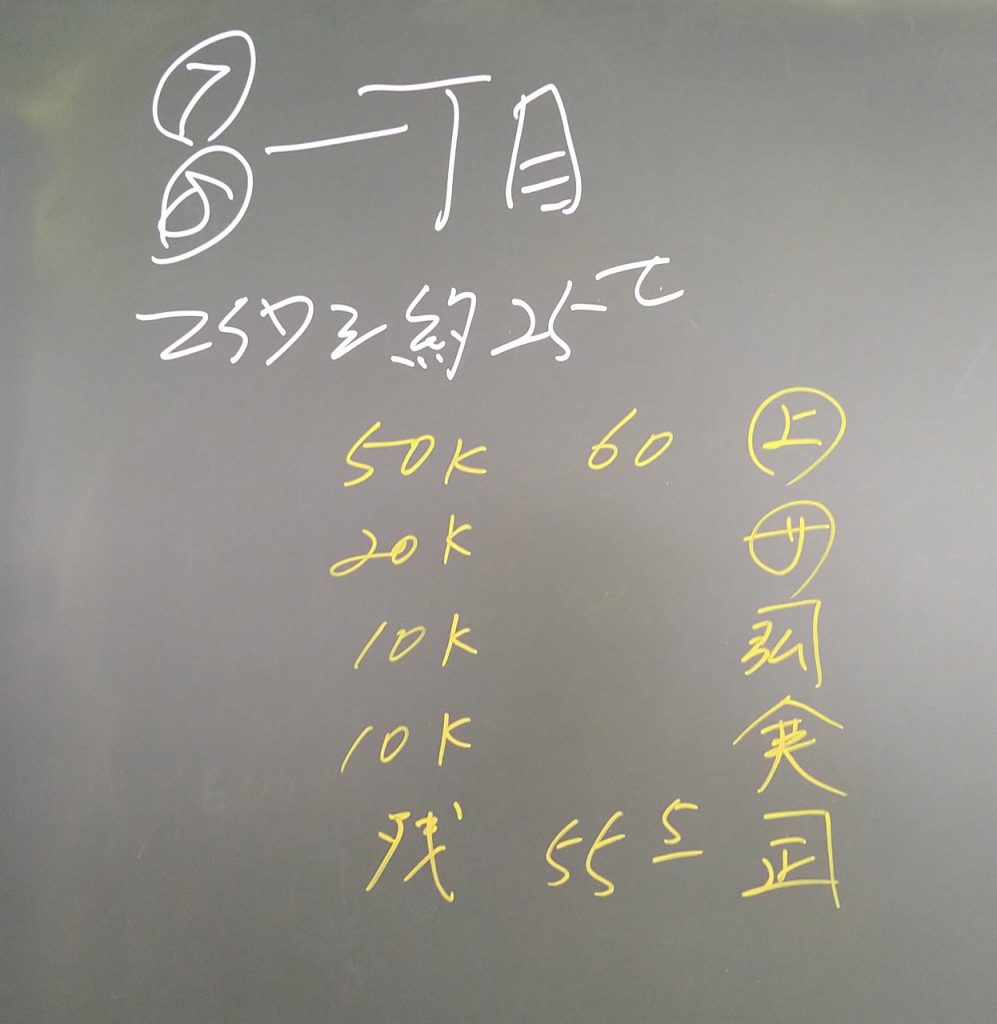 ⑦
⑥ 一丁目
約25t
50K 60 上
20K サ
10K 弘
10K
残 55 5 正